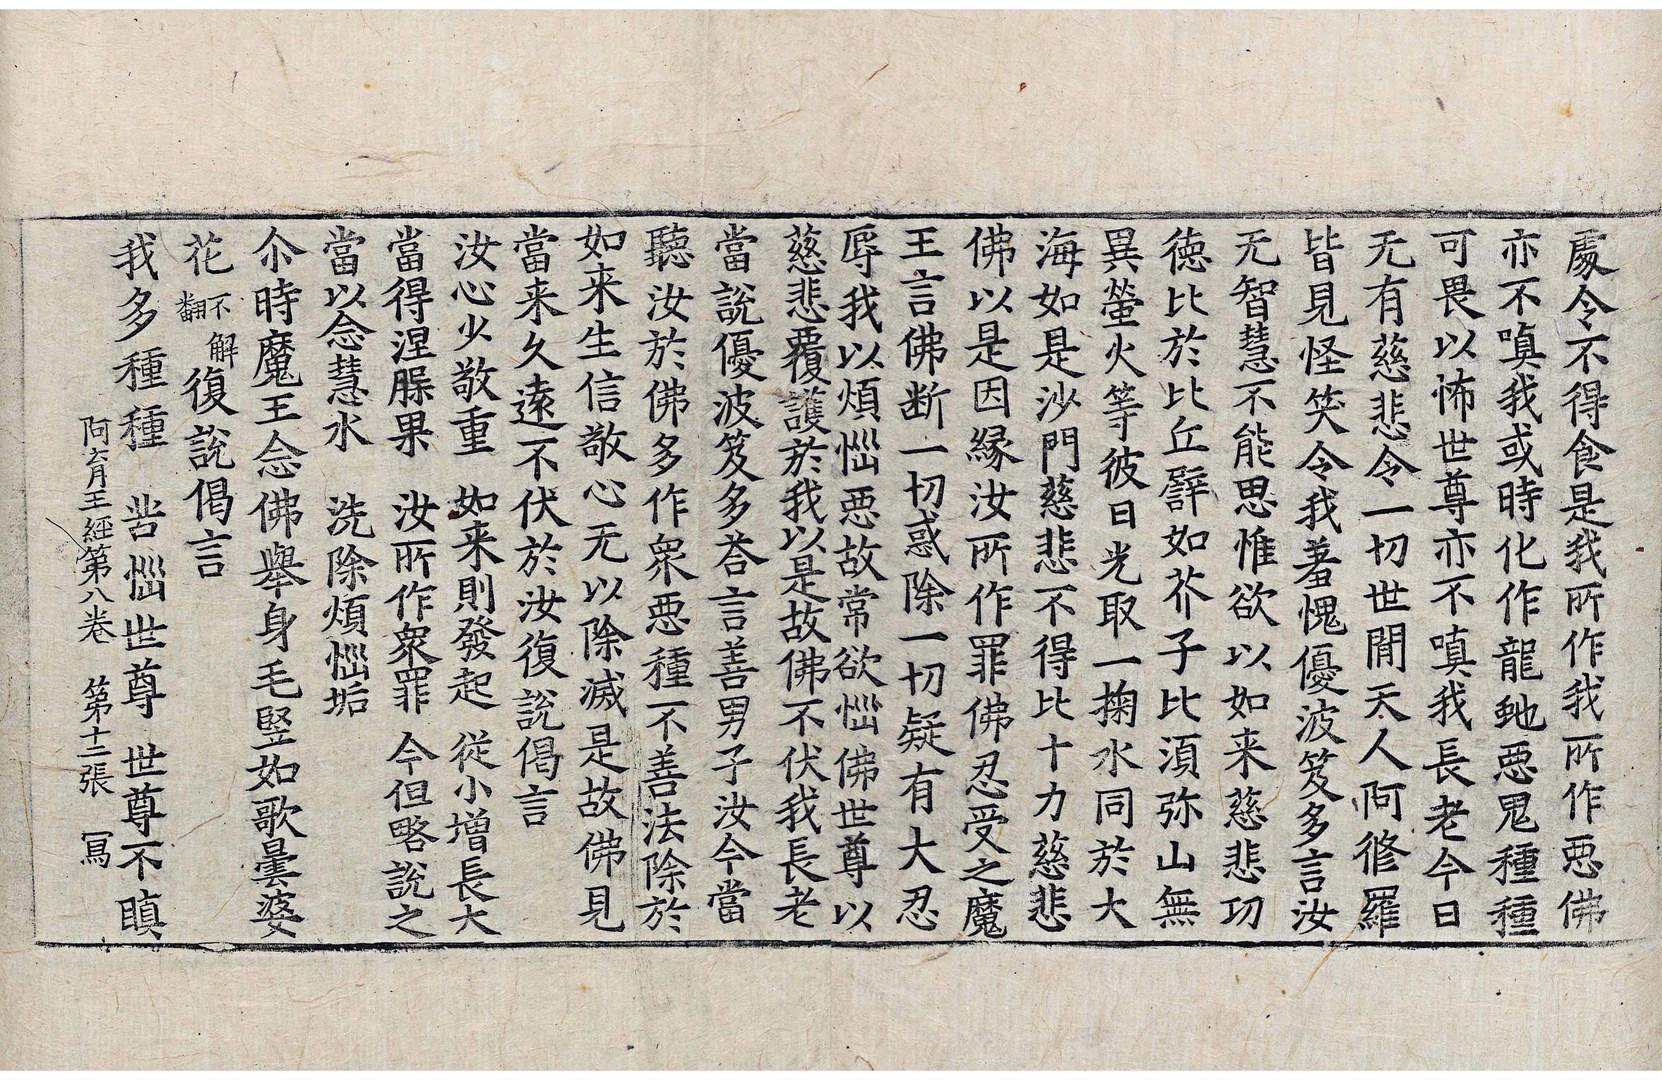 處令不得食是我所作我所作惡佛
亦不嗔我或時化作龍虵惡鬼種種
可畏以怖世尊亦不嗔我長老今日
无有慈悲令一切世間天人阿修羅
皆見怪笑令我羞愧優波笈多言汝
无智慧不能思惟欲以如来慈悲功
德比於比丘譬如芥子比湏弥山無
異螢火等彼日光取一掬水同於大
海如是沙門慈悲不得比十力慈悲
佛以是因縁汝所作罪佛忍受之魔
王言佛断一切惑除一切疑有大忍
辱我以煩惱惡故常欲惱佛世尊以
慈悲覆護於我以是故佛不伏我長老
當說優波笈多荅言善男子汝今當
聽汝於佛多作衆惡種不善法除於
如来生信敬心无以除滅是故佛見
當来久遠不伏於汝復說偈言
汝心少敬重　如来則發起　從小增長大
當得涅槃果　汝所作衆罪　今但略說之
當以念慧水　洗除煩惱垢
尒時魔王念佛舉身毛竪如歌曇婆
花不解翻復說偈言
我多種種　苦惱世尊　世尊不瞋
阿育王經第八卷　第十二張　冩